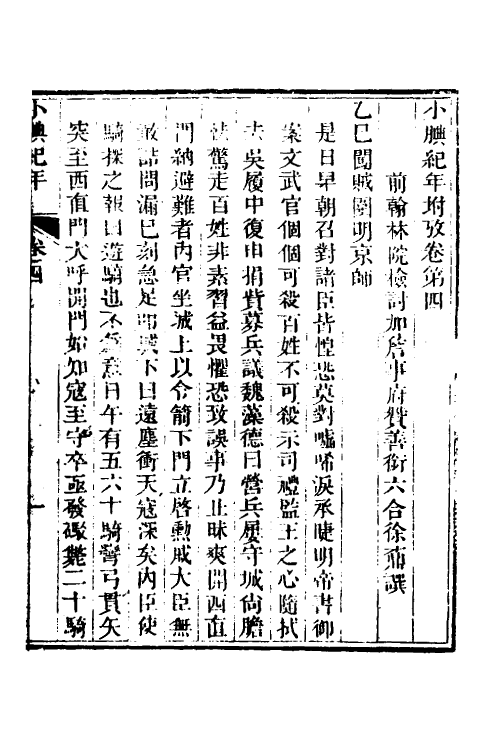 小腆紀年坿攷卷第四
前翰林院檢討加詹事府贊善銜六合徐鼒譔
乙巳闖賊圍明京師
是日早朝召對諸臣皆惶恐莫對噓唏淚承睫明帝書御
案文武官個個可殺百姓不可殺示司禮監王之心隨拭
去吳履中復申捐貲募兵議魏藻德曰營兵屢守城尙膽
怯驚走百姓非素習益畏懼恐致誤事乃止昧爽開西直
門納避難者內官坐城上以令箭下門立啓勳戚大臣無
敢詰問漏巳刻急足馳城下曰遠塵衝天寇深矣內臣使
騎探之報曰遊騎也不爲意日午有五六十騎彎弓貫矢
突至西直門大呼開門始知寇至守卒亟發礟斃二十騎
小腆紀年
卷四
一